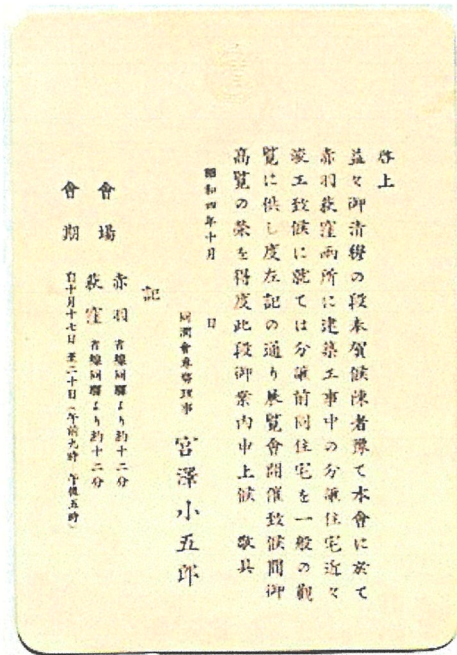 啓上
益々御清穆の段奉賀候陳者豫て本會に於て
赤羽荻窪兩所に建築工事中の分讓住宅近々
竣工致候に就ては分讓前同住宅を一般の觀
覧に供し度左記の通り展覧會開催致候間御
高覧の榮を得度此段御案内申上候 敬具
昭和四年十月 日
同潤會專務理事 宮澤小五郎
記
會場 赤羽 省線同驛より約十二分
荻窪 省線同驛より約十二分
會期 自十月十七日 至二十日(午前九時 午後五時)